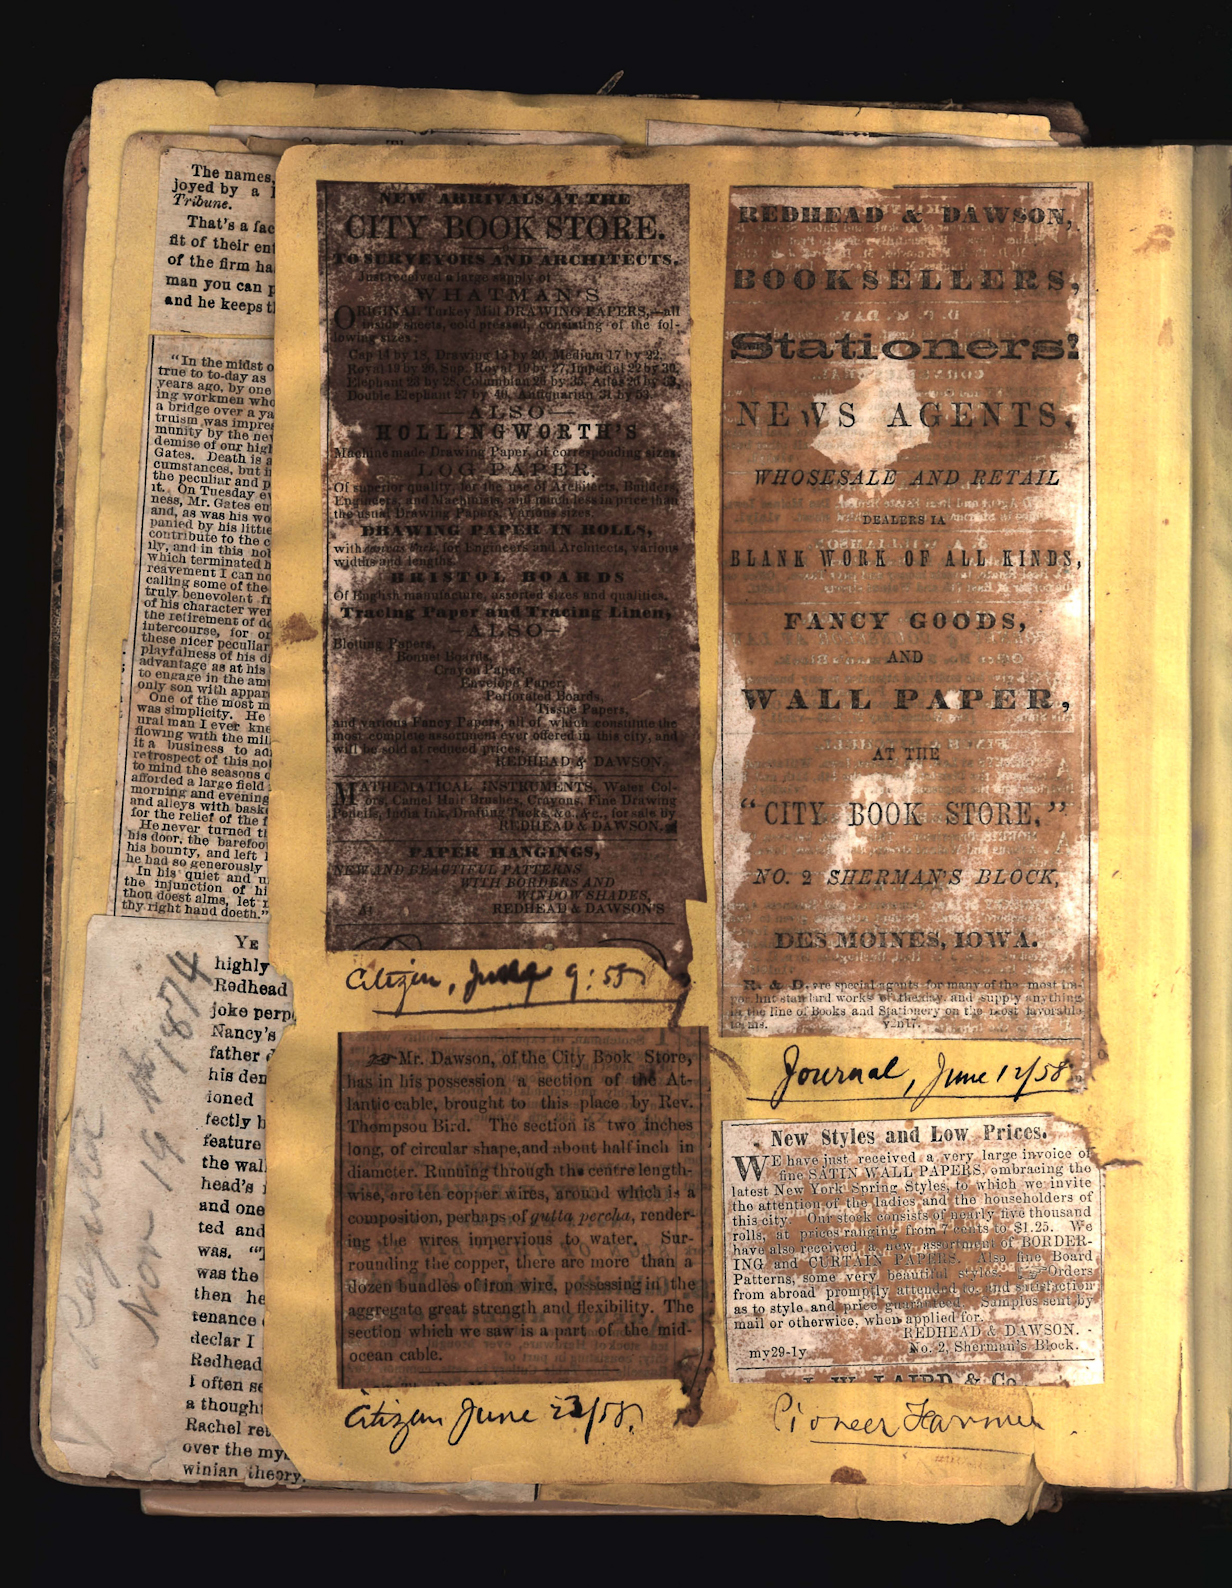 The names,
joyed by a
Tribune.
That's a fac
fit of their ent
of the firm ha
man you can p
and he keeps t
"In the midst o
true to to-day as
years ago, by one
ing workmen who
a bridge over a ya
truism was impre
munity by the ne
demise of our hig
Gates. Death is a
cumstances, but i
the peculiar and p
it. On Tuesday e
ness, Mr. Gates en
and, as was his wo
panied by his little
contribute to the c
ily, and in this no
which terminated h
reavement I can no
calling some of the
truly benevolent fr
of his character wer
the retirement of do
intercourse, for or
these nicer peculiar
playfulness of his di
advantage as at his
to engage in the am
only son with appar
One of the most m
was simplicity. He
ural man I ever kne
flowing with the mil
it a business to ad
retrospect of this no
to mind the seasons o
afforded a large field
morning and evening
and alleys with bask
for the relief of the f
He never turned t
his door, the barefoo
his bounty, and left
he had so generously
In his quiet and u
the injunction of hi
thou doest alms, let
thy right hand doeth."
Register
Nov 19th 1874
YE
highly
Redhead
joke perp
Nancy's
father
his den
ioned
fectly h
feature
the wal
head's
and one
ted and
was. "I
was the
then he
tenance
declar I
Redhead
I often se
a thought
Rachel ret
over the my
winian theory,
NEW ARRIVALS AT THE
CITY BOOK STORE.
TO SURVEYORS AND ARCHITECTS.
Just received a large supply of
WHATMAN'S
ORIGINAL Turkey Mill DRAWING PAPERS,—all
inside sheets, cold pressed, consisting of the fol-
lowing sizes:
Cap 14 by 18, Drawing 15 by 20, Medium 17 by 22,
Royal 19 by 26, Sup. Royal 19 by 27, Imperial 22 by 30,
Elephant 23 by 28, Columbian 23 by 35, Atlas 26 by 33,
Double Elephant 27 by 40, Antiquarian 31 by 53.
—ALSO—
HOLLINGWORTH'S
Machine made Drawing Paper, of corresponding sizes.
LOG PAPER,
Of superior quality, for the use of Architects, Builders,
Engineers, and Machinists, and much less in price than
the usual Drawing Papers, Various sizes.
DRAWING PAPER IN ROLLS,
with canvas back, for Engineers and Architects, various
widths and lengths.
BRISTOL BOARDS
Of English manufacture, assorted sizes and qualities.
Tracing Paper and Tracing Linen,
—ALSO—
Blotting Papers,
Bonnet Boards,
Crayon Paper,
Envelope Paper,
Perforated Boards,
Tissue Papers,
and various Fancy Papers, all of which constitute the
most complete assortment ever offered in this city, and
will be sold at reduced prices.
REDHEAD & DAWSON.
MATHEMATICAL INSTRUMENTS, Water Col-
ors, Camel Hair Brushes, Crayons, Fine Drawing
Pencils, India Ink, Drafting Tacks, &c., &c., for sale by
REDHEAD & DAWSON.
PAPER HANGINGS,
NEW AND BEAUTIFUL PATTERNS
WITH BORDERS AND
WINDOW SHADES,
At REDHEAD & DAWSON'S
Citizen, June 9: 58
Mr. Dawson, of the City Book Store,
has in his possession a section of the At-
lantic cable, brought to this place by Rev.
Thompson Bird. The section is two inches
long, of circular shape, and about half inch in
diameter. Running through the centre length-
wise, are ten copper wires, around which is a
composition, perhaps of gutta percha, render-
ing the wires impervious to water. Sur-
rounding the copper, there are more than a
dozen bundles of iron wire, possessing in the
aggregate great strength and flexibility. The
section which we saw is a part of the mid-
ocean cable.
Citizen June 23/58.
REDHEAD & DAWSON,
BOOKSELLERS,
Stationers!
NEWS AGENTS,
WHOSESALE AND RETAIL
DEALERS IA
BLANK WORK OF ALL KINDS,
FANCY GOODS,
AND
WALL PAPER,
AT THE
"CITY BOOK STORE,"
NO. 2 SHERMAN'S BLOCK,
DES MOINES, IOWA.
R. & D. are special agents for many of the most im-
portant standard works of the day, and supply anything
in the line of Books and Stationery on the most favorable
terms. v2n17.
Journal, June 12/58
New Styles and Low Prices.
WE have just received a very large invoice of
fine SATIN WALL PAPERS, embracing the
latest New York Spring Styles, to which we invite
the attention of the ladies and the householders of
this city. Our stock consists of nearly five thousand
rolls, at prices ranging from 7 cents to $1.25. We
have also received a new assortment of BORDER-
ING and CURTAIN PAPERS. Also fine Board
Patterns, some very beautiful styles. Orders
from abroad promptly attended to, and satisfaction
as to style and price guaranteed. Samples sent by
mail or otherwice, when applied for.
REDHEAD & DAWSON.
my29-1y No. 2, Sherman's Block.
J. W. LAIRD & Co
Pioneer Farmer